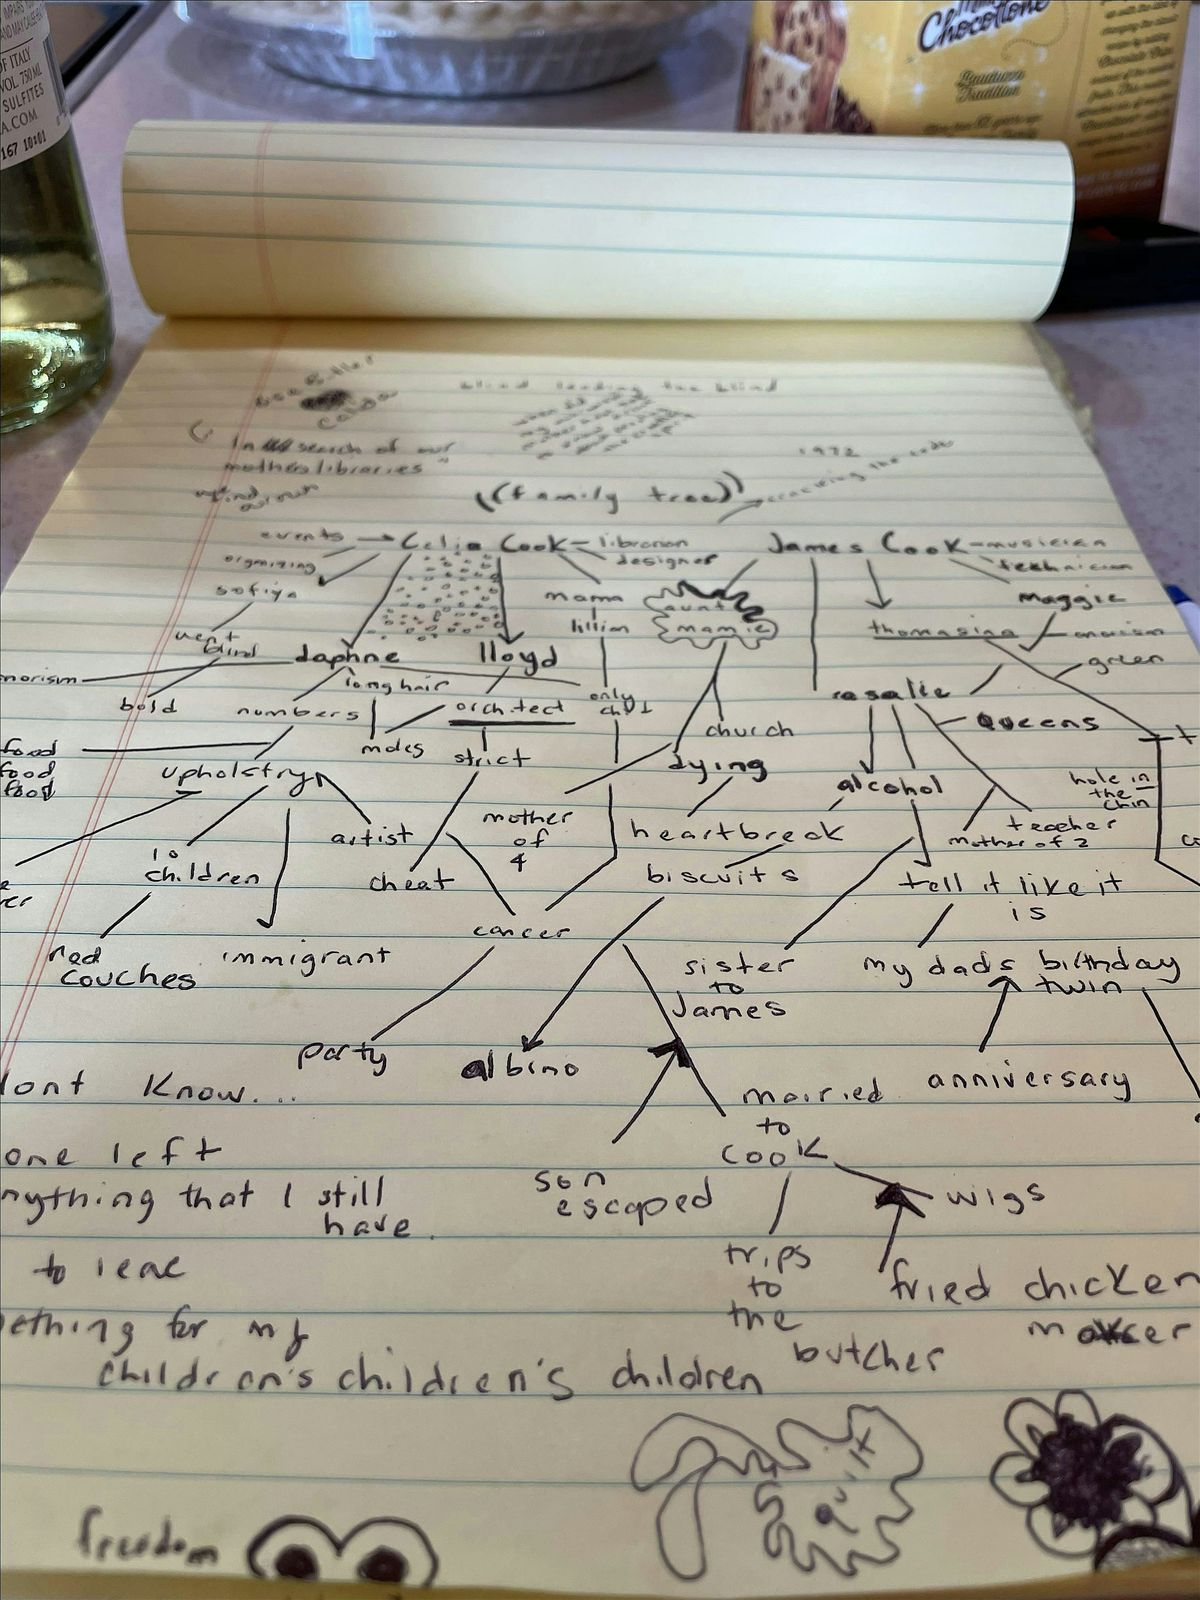 IMPARTS
AND MAY CAUSE
OF ITALY
VOL 750 ML
SULFITES
A.COM
167 10:01
Chocottone
Bauducco
Tradition
blind leading the blind
In search of our
mothers libraries"
1972
cracking the code
((family tree))
events
Celia Cook
librarian
James Cook
musician
organizing
designer
technician
sofiya
mama
aunt
maggie
lillian
mamie
thomasina
went
blind
daphne
lloyd
green
long hair
only
child
rosalie
bold
numbers
architect
Queens
church
food
food
food
moles
strict
dying
upholstry
alcohol
hole in
the
chin
artist
mother
of
4
heartbreak
teacher
mother of 2
10
children
cheat
biscuits
tell it like it
is
cancer
red
couches
immigrant
sister
to
James
my dads birthday
twin
party
albino
anniversary
dont know...
married
to
cook
one left
son
escaped
wigs
nything that I still
have.
trips
to
the
butcher
fried chicken
ething for my
children's children's children
quilt
freedom